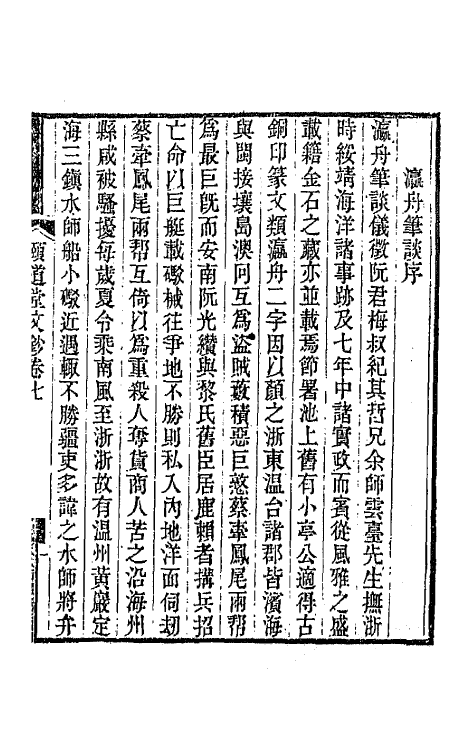 瀛舟筆談序
瀛舟筆談儀徵阮君梅叔紀其哲兄余師雲臺先生撫浙
時綏靖海洋諸事跡及七年中諸實政而賓從風雅之盛
載籍金石之藏亦並載焉節署池上舊有小亭公適得古
銅印篆文類瀛舟二字因以顏之浙東温台諸郡皆濱海
與閩接壤島澳阿互為盗賊藪積惡巨憝蔡牽鳳尾兩幫
為最巨旣而安南阮光纘與黎氏舊臣居鹿賴者搆兵招
亡命以巨艇載礮械往爭地不勝則私入內地洋面伺刧
蔡牽鳳尾兩幫互倚以為重殺人奪貨商人苦之沿海州
縣咸被騷擾每歲夏令乘南風至浙浙故有温州黃巖定
海三鎮水師船小礮近遇輒不勝疆吏多諱之水師將弁
頤道堂文鈔卷七
一